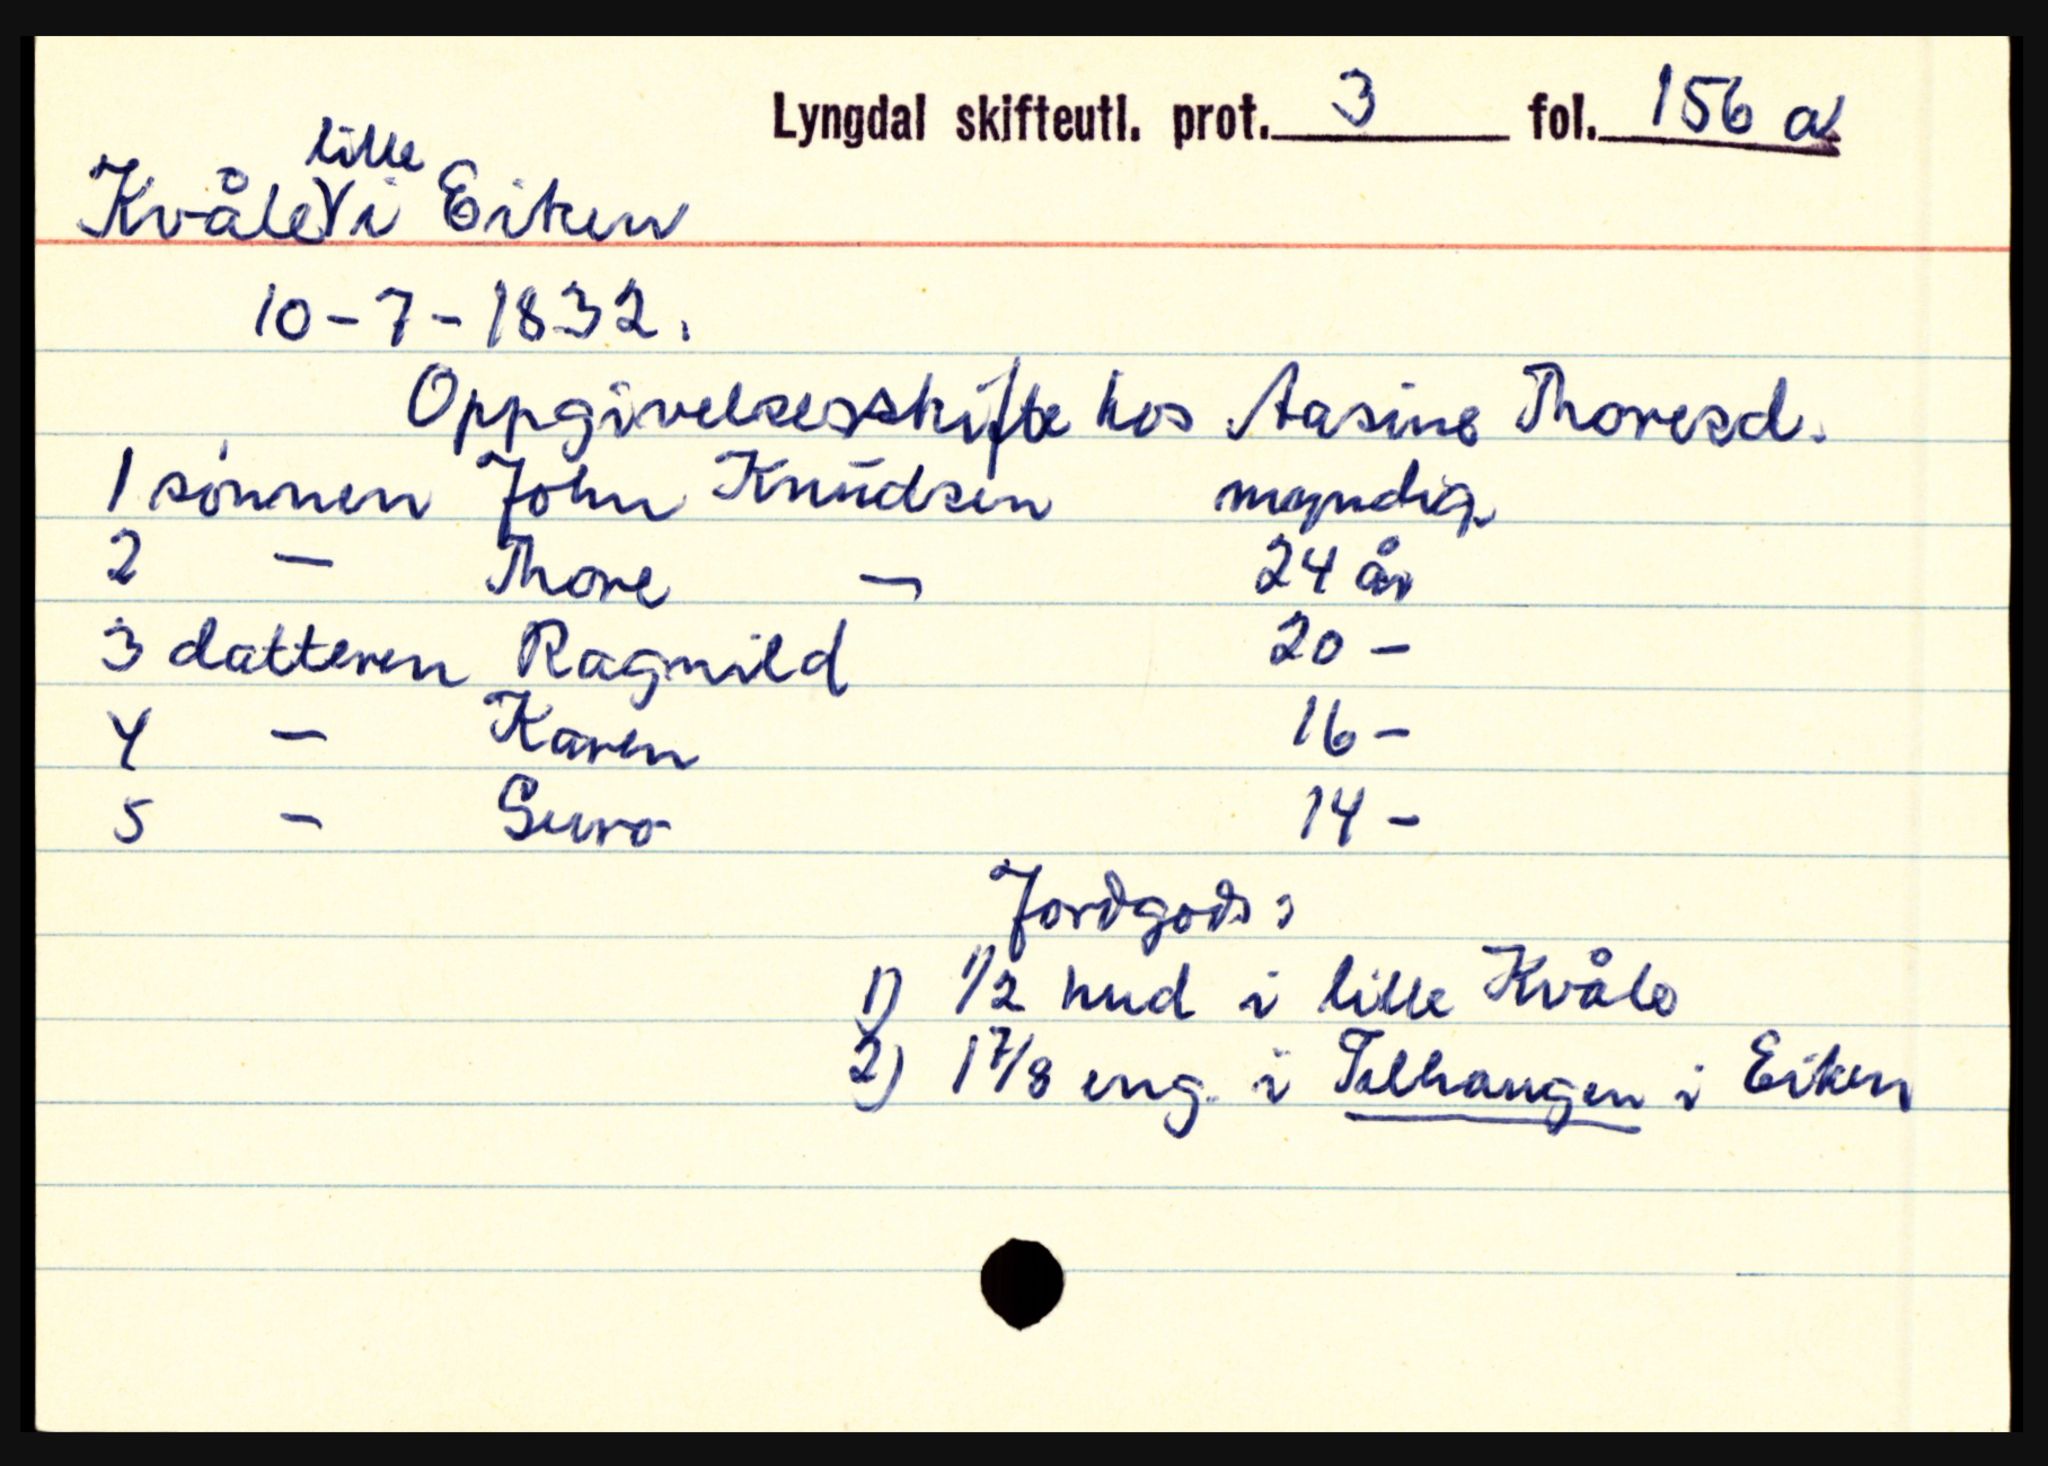 Lyngdal skifteutl. prot. 3 fol. 156 a
Kvåle lille i Eiken
10-7-1832.
Oppgivelsesskifte hos Aasine Thoresd.
1 sønnen John Knudsen myndig
2 — Thore — 24 år
3 datteren Ragnild 20 -
4 — Karen 16 -
5 - Guro 14 -
Jordgods:
1) 1/2 hud i lille Kvåle
2) 1 7/8 eng. i Telhaugen i Eiken